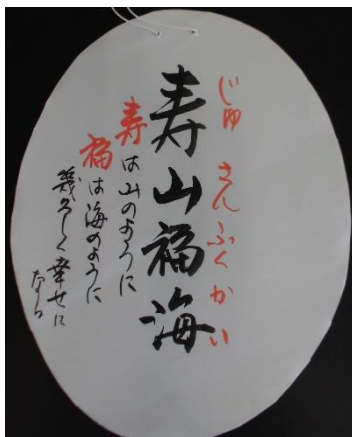 じゅ さん ふく かい
寿山福海
寿は山のように
福は海のように
幾久しく 幸せに
なる